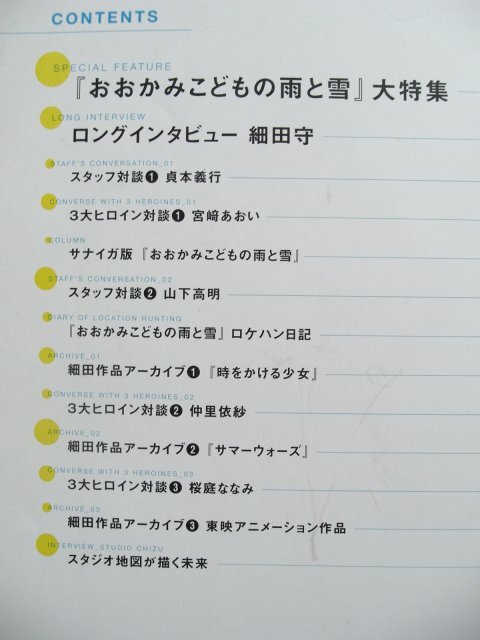 CONTENTS
SPECIAL FEATURE
『おおかみこどもの雨と雪』大特集
LONG INTERVIEW
ロングインタビュー 細田守
STAFF'S CONVERSATION_01
スタッフ対談❶ 貞本義行
CONVERSE WITH 3 HEROINES_01
3大ヒロイン対談❶ 宮﨑あおい
COLUMN
サナイガ版『おおかみこどもの雨と雪』
STAFF'S CONVERSATION_02
スタッフ対談❷ 山下高明
DIARY OF LOCATION HUNTING
『おおかみこどもの雨と雪』ロケハン日記
ARCHIVE_01
細田作品アーカイブ❶『時をかける少女』
CONVERSE WITH 3 HEROINES_02
3大ヒロイン対談❷ 仲里依紗
ARCHIVE_02
細田作品アーカイブ❷『サマーウォーズ』
CONVERSE WITH 3 HEROINES_03
3大ヒロイン対談❸ 桜庭ななみ
ARCHIVE_03
細田作品アーカイブ❸ 東映アニメーション作品
INTERVIEW_STUDIO CHIZU
スタジオ地図が描く未来